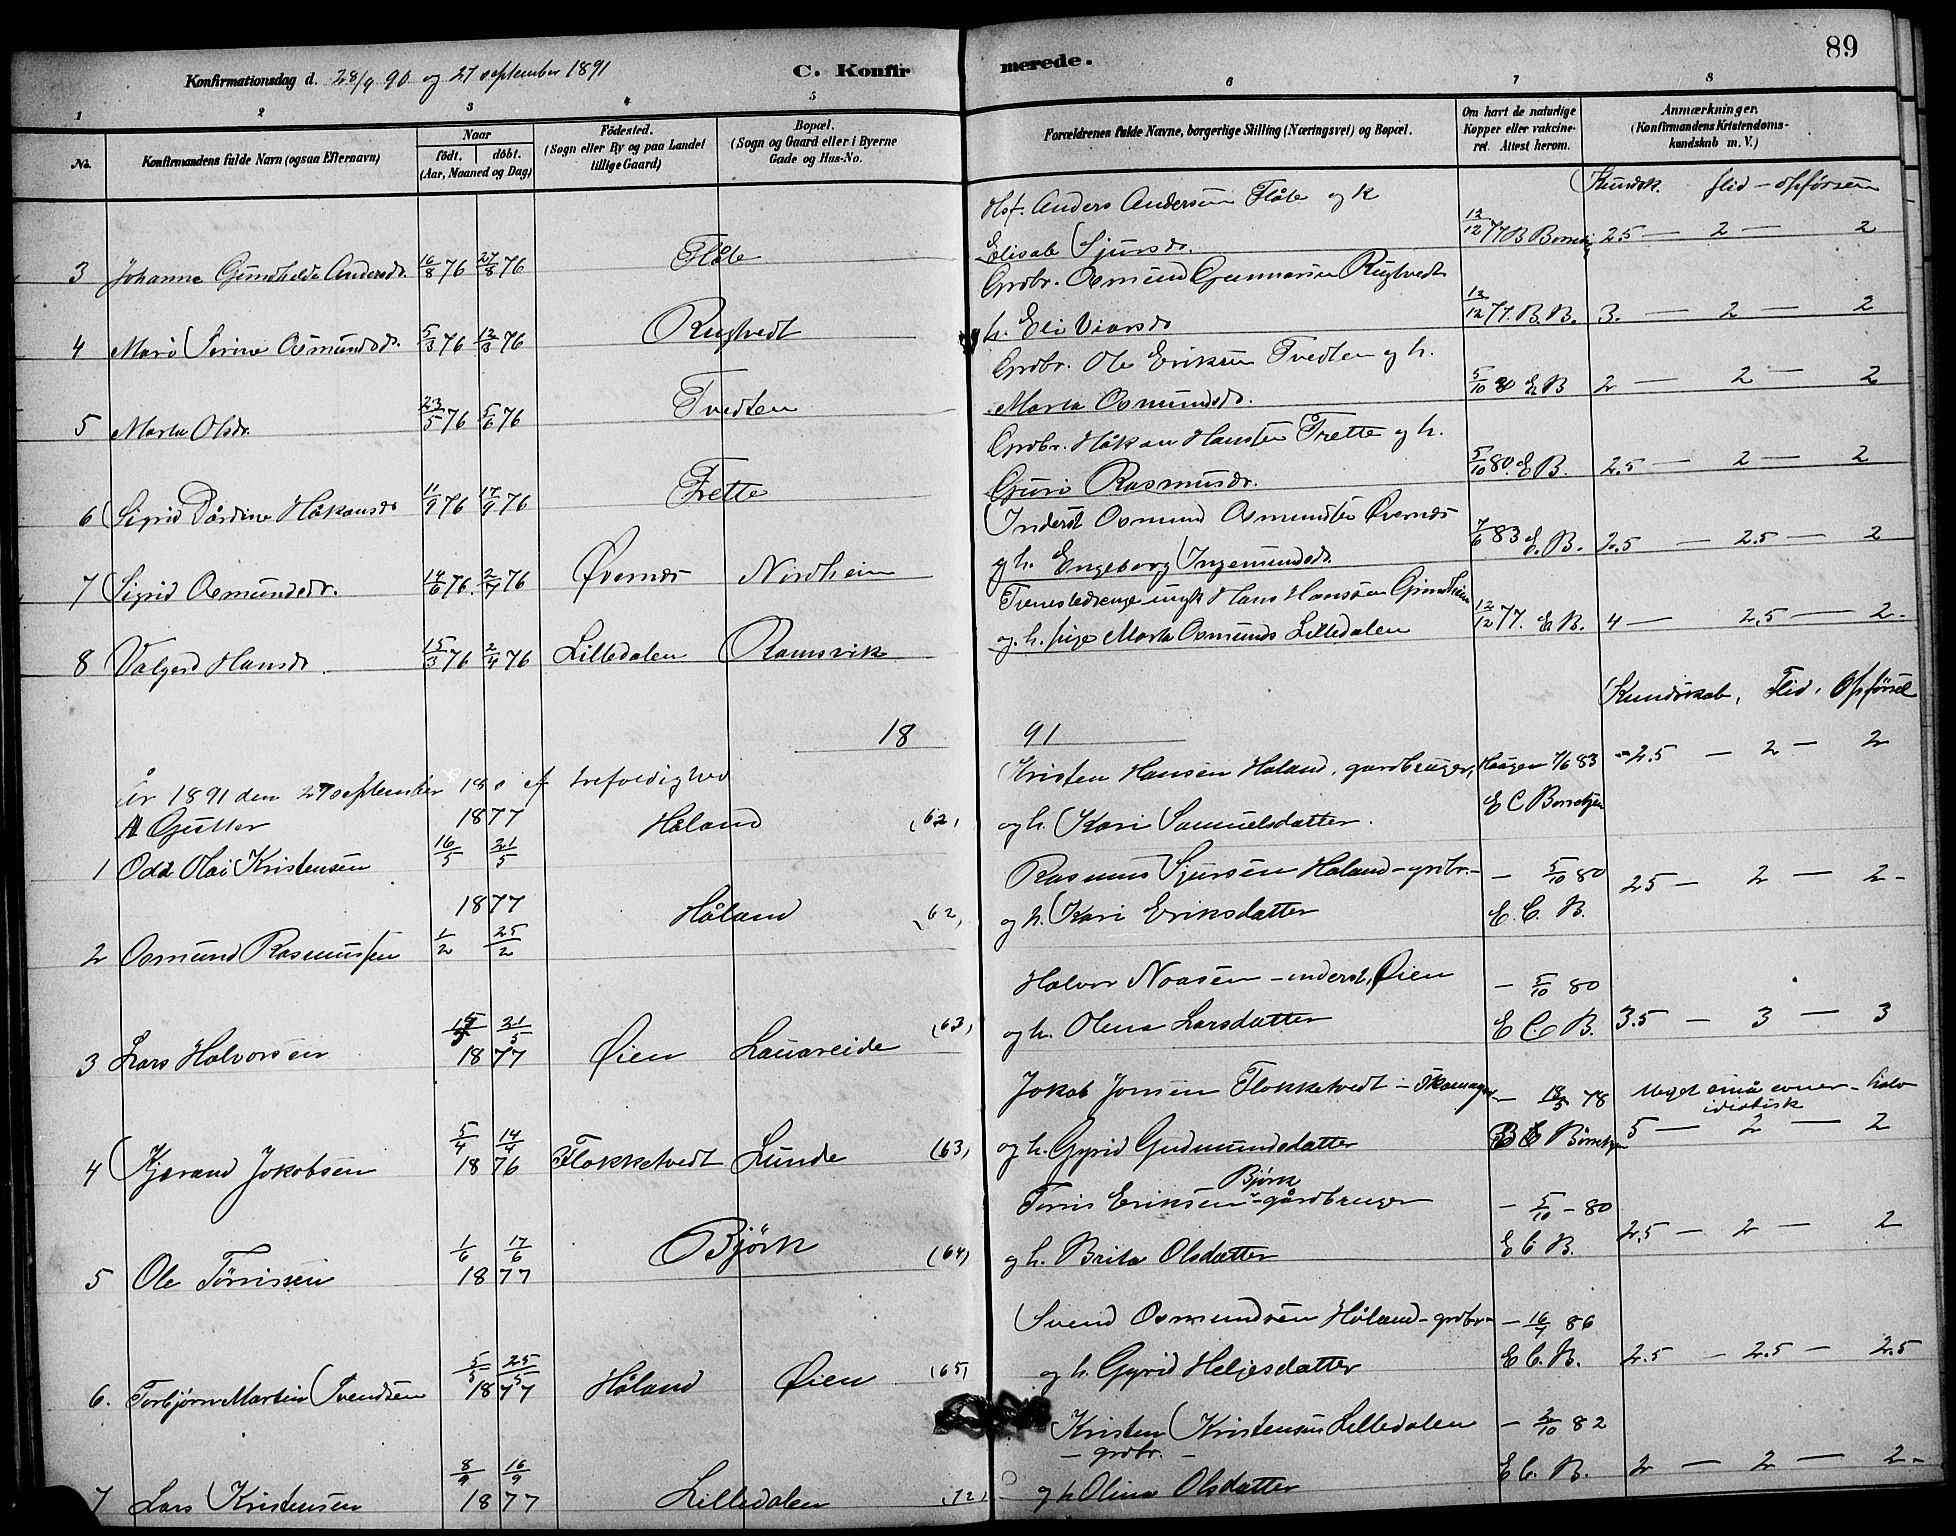 Konfirmationsdag d. 28/9 90 og 27 september 1891
C. Konfirmerede.
89
1 2 3 4 5 6 7 8
No.
Konfirmandens fulde Navn (ogsaa Efternavn)
Naar
födt. döbt.
(Aar, Maaned og Dag)
Födested.
(Sogn eller By og paa Landet
tillige Gaard)
Bopæl.
(Sogn og Gaard eller i Byerne
Gade og Hus-No.
Forældrenes fulde Navne, borgerlige Stilling (Næringsvei) og Bopæl.
Om havt de naturlige
Kopper eller vakcine-
ret. Attest herom.
Anmærkninger.
(Konfirmandens Kristendoms-
kundskab m. V.)
Kundsk. flid - opførsen
Anders Andersen Flåte og k
3 Johanne Gunhilde Andersdr. 16/8 76 27/8 76 Flåte
Elisab Sjursdr. 12/12 77 B 2.5 — 2 — 2
Grdbr. Osmund Gunnarsen Rugtvedt
4 Mari Serine Osmundsdr. 5/3 76 12/3 76 Rugtvedt
h. Eli 12/12 77. B. B. 3. — 2 — 2
Grdbr. Ole Eriksen Tvedten og h.
5 Marta Olsdr. 23/5 76 5/6 76 Tvedten
Marta Osmundsdr. 5/10 80 E B 2 — 2 — 2
Grdbr. Håkon Hansen Trette og h.
6 Sigrid Håkonsdr 11/9 76 17/9 76 Trette
Guri Rasmusdr. 5/10 80. E B. 2.5 — 2 — 2
Inderst Osmund Osmundsen Øvernes
7 Sigrid Osmundsdr. 14/6 76. 2/7 76 Øvernes Nordheim
og h. Engeborg Ingemundsdr. 7/6 83 E. B. 2.5 — 2.5 — 2
Hans Hansen Grindheim
8 Valgerd Hansdr. 15/3 76 2/4 76 Lilledalen Ramsvik
og. h. pige Marta Osmunds Lilledalen 12/12 77. E B. 4 — 2.5 — 2 -
Kundskab, Flid, Opførsel
1891
År 1891 den 27 september 18 s ef trefoldighed
Gutter
Kristen Hansen Håland, gardbruger, 7/6 83 2.5 — 2 — 2
1 Odd Olai Kristensen 1877 16/5 21/5 Håland (62)
og h. Kari Samuelsdatter. E C
Rasmus Sjursen Håland - grdbr. — 5/10 80 25 — 2 — 2 -
2 Osmund Rasmussen 1877 1/2 25/2 Håland (62)
og h. Kari Eriksdatter E. C. B.
Halvor Noasen - inderst, Øien — 5/10 80
3 Lars Halvorsen 21/5 1877 Øien Lauareide (63)
og h. Olena Larsdatter E C. B. 3.5 — 3 — 3
Jokob Jonsen Flokketvedt - Skomager — 78 Meget små evner - halv
idiotisk
4 Kjerand Jokobsen 5/4 14/4 1876 Flokketvedt Lunde (63)
og h. Gyrid Gudmundsdatter 5 — 2 — 2
Bjørk
Tørris Eriksen - gårdbruger — 5/10 - 80
5 Ole Tørrissen 1/6 17/6 1877 Bjørk (64)
og h. Brita Olsdatter E C B. 2.5 — 2 — 2
Svend Osmundsen Håland - grdbr - — 16/7 86
6. Torbjørn Martin Svendsen 5/5 25/5 1877 Håland Øien (65)
og h. Gyrid Heljesdatter E C. B. 2.5 — 2.5 — 2.5
Kristen Kristensen Lilledalen — 2/10 82
- grdbr. -
7 Lars Kristensen 8/9 16/9 1877 Lilledalen (72)
og h Olina Olsdatter E C. B. 2 — 2 — 2 -